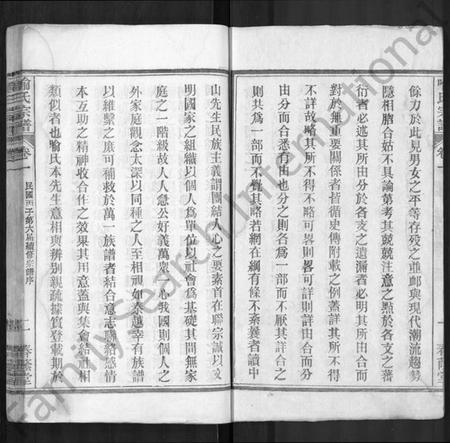 喻氏宗譜 卷一
餘力於此見男女之平等存歿之並卹與現代潮流趨勢
隱相脗合姑不具論第考其兢兢注意之點於各支之蕃
衍者必述其所由分於各支之遺漏者必懸其所由合而
對於無重要關係者皆循史傳附載之例蓋詳其所不得
不詳故略其所不得不略可畧則畧可詳則詳由合而分
由分而合悉有由也分之則各爲一部而不厭其詳合之
則共爲一部而不覺其略若網在綱有條不紊養者讀中
山先生民族主義謂團結人心之要素首在聯宗誠以文
明國家之組織以個人爲單位以社會爲基礎其間無家
庭之一階級故人人急公好義萬衆一心我國則個人之
外家庭觀念太深以同種之人至相視如秦越幸有族譜
以維繫之庶可補救於萬一族譜者結合意志聯絡感情
本互助之精神收合作之效果其用意蓋與集會結社相
類似者也喻氏本先生意相與辨別親疏據實登載期於
喻氏宗譜 卷一 民國丙子第六屆續修宗譜序 一 春蔭堂
FamilySearch International